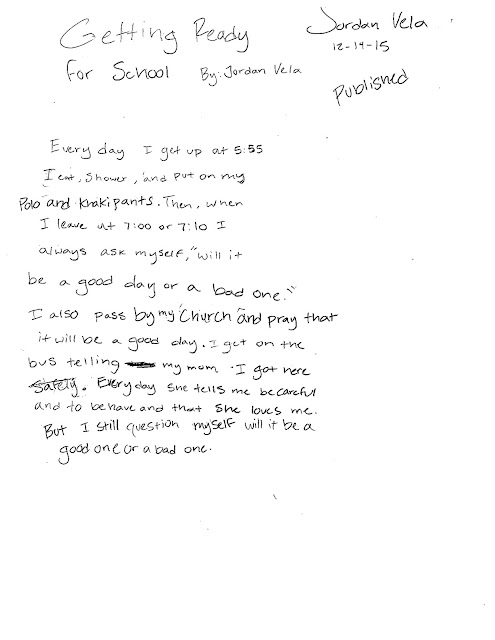 Getting Ready
for School By: Jordan Vela
Jordan Vela
12-14-15
Published
Every day I get up at 5:55
I eat, shower, and put on my
Polo and khaki pants. Then, when
I leave at 7:00 or 7:10 I
always ask myself, "will it
be a good day or a bad one."
I also pass by my church and pray that
it will be a good day. I get on the
bus telling my mom I got here
safely. Everyday she tells me be careful
and to behave and that she loves me.
But I still question myself will it be a
good one or a bad one.